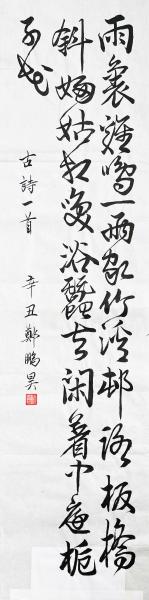 雨裏雞鳴一兩家竹溪邨路板橋
斜婦姑相喚浴蠶去閑著中庭梔
子花
古詩一首
辛丑鄭鵬昊